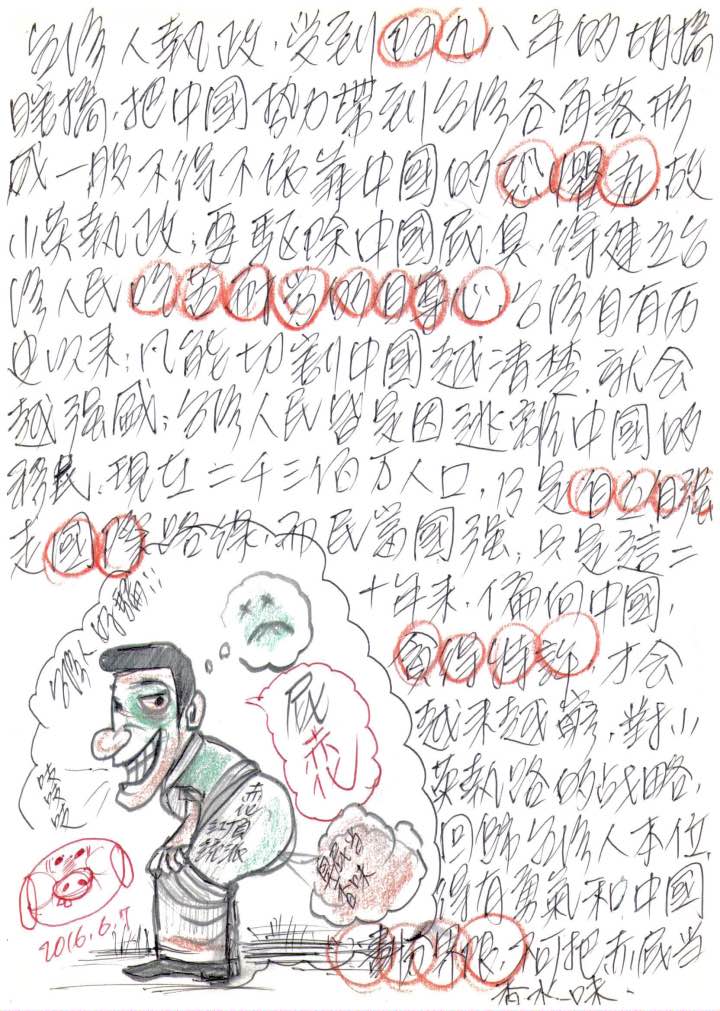 台湾人執政,受到的九八年的胡搞
瞎搞,把中國势力帶到台湾各角落,形
成一股不得不依靠中國的恐懼症,故
小英執政;要駆除中國屁臭,得建立台
湾人民的自尊心,台湾自有历
史以来;凡能切割中國越清楚,就会
越强盛;台湾人民皆是因逃離中國的
移民,現在二千三佰万人口,乃是自立自强
走國際路線,而民富國强;只是這二
十年来,偏向中國,
才会
越来越窮,對小
英執路的战略,
回歸台湾人本位,
得有勇氣和中國
劃清界限,不可把赤屁当
香水味.
台湾人好騙!!
屁赤化
吱吱吱
赤化
紅頂
統派
臭屁当
香味
2016.6.7